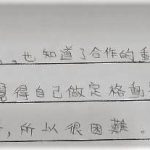 ，也知道了合作的重
覺得自己做定格動
，所以很困難。